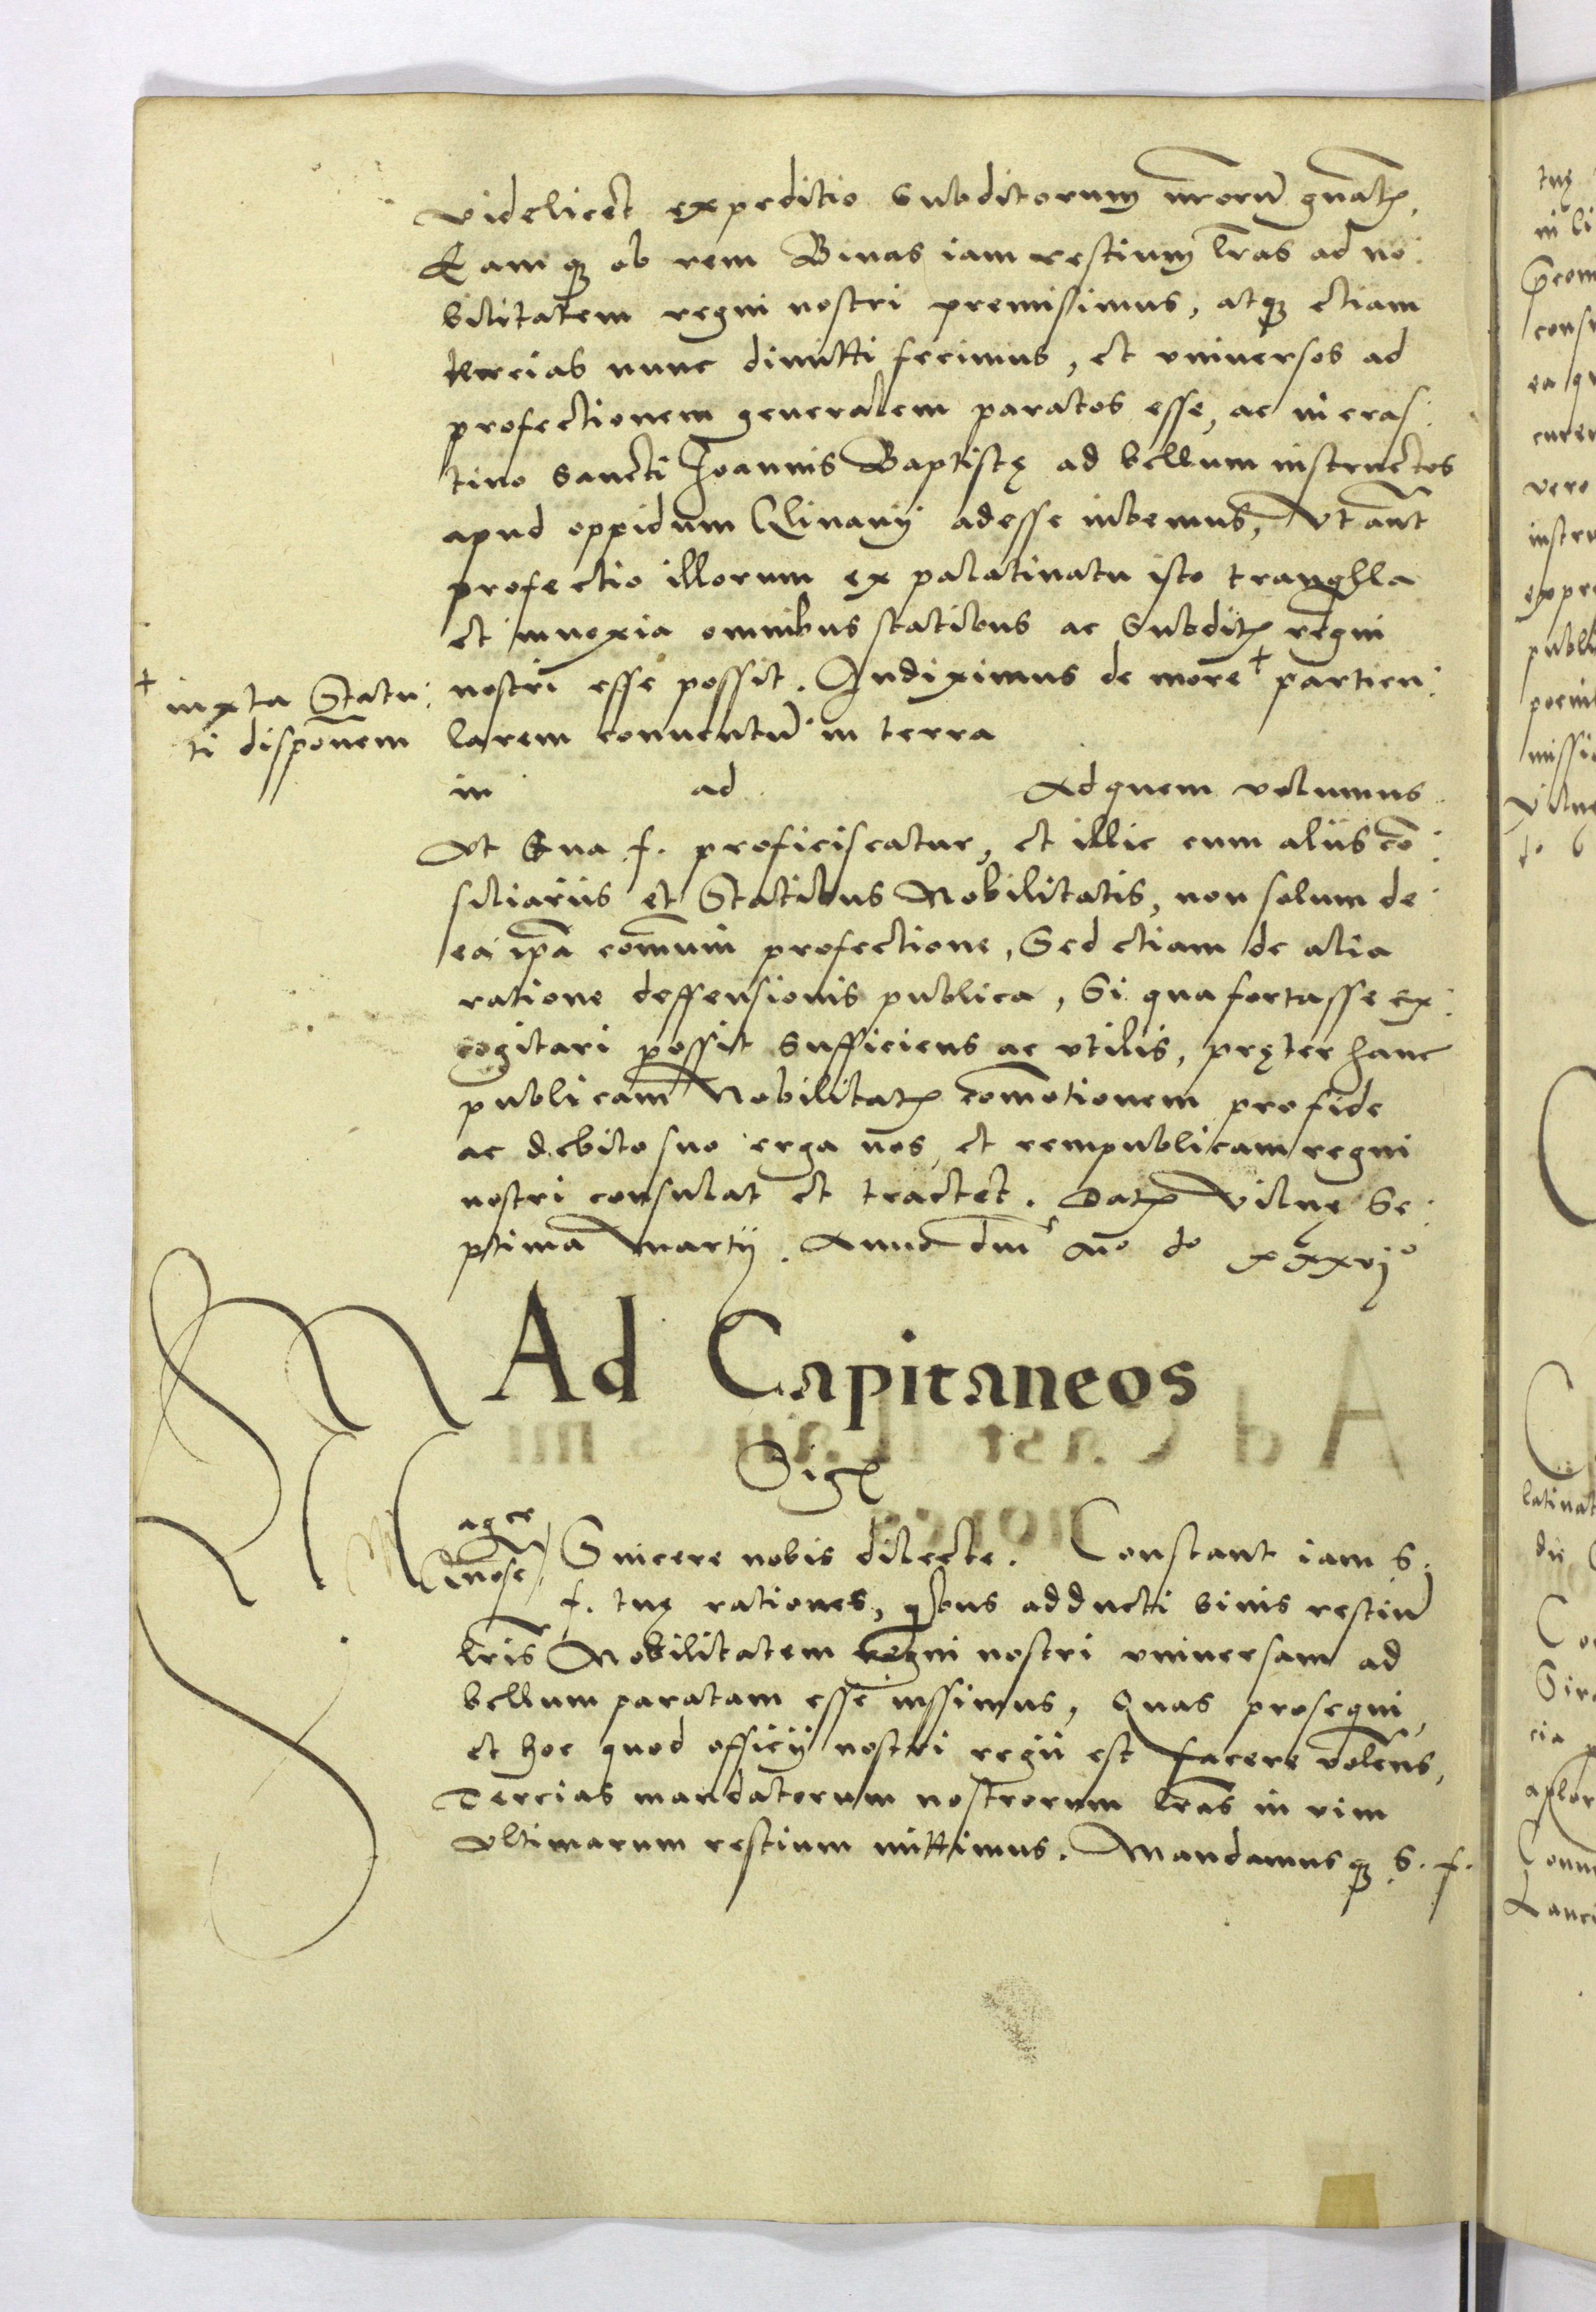 videlicet expeditio Subditorum nrorũ gnalis,
Eamq; ob rem Binas iam restium lras ad no:
bilitatem regni nostri premisimus, atq; etiam
tercias nunc dimitti fecimus, et vniuersos ad
profectionem generalem paratos esse, ac in cras:
tino Sancti Joannis Baptistę ad bellum instructos
apud oppidum Glinany adesse iubemus, Vt aut
profectio illorum ex palatinatu isto tranqlla
et innoxia omnibus statibus ac Subditis regni
nostri esse possit. Indiximus de more + particu:
+ iuxta Statu:
ti disponem
larem conuentũ in terra
in ad Ad quem volumus
Vt Sua f. proficiscatur, et illic cum alijs cõ:
siliarijs et Statibus Nobilitatis, non solum de
ea ipa comuni profectione, Sed etiam de alia
ratione deffensionis publica, Si qua fortasse ex:
cogitari possit Sufficiens ac vtilis, pręter hanc
publicam Nobilitatis comotionem pro fide
ac debito suo erga nos, et rempublicam regni
nostri consulat et tractet. Datis Vilnę Se:
ptima Martij. Anno dni Mo do xxxvijo
Ad Capitaneos
Sigs
Magce
Gnose
Sincere nobis dilecte. Constant iam S.
f. tuę rationes, qbus adducti binis restiũ
lris Nobilitatem regni nostri vniuersam ad
bellum paratam esse iussimus, Quas prosequi,
et hoc quod officij nostri regij est facere volens,
Tercias mandatorum nostrorum lras in vim
vltimarum restium mittimus. Mandamusq; S. f.